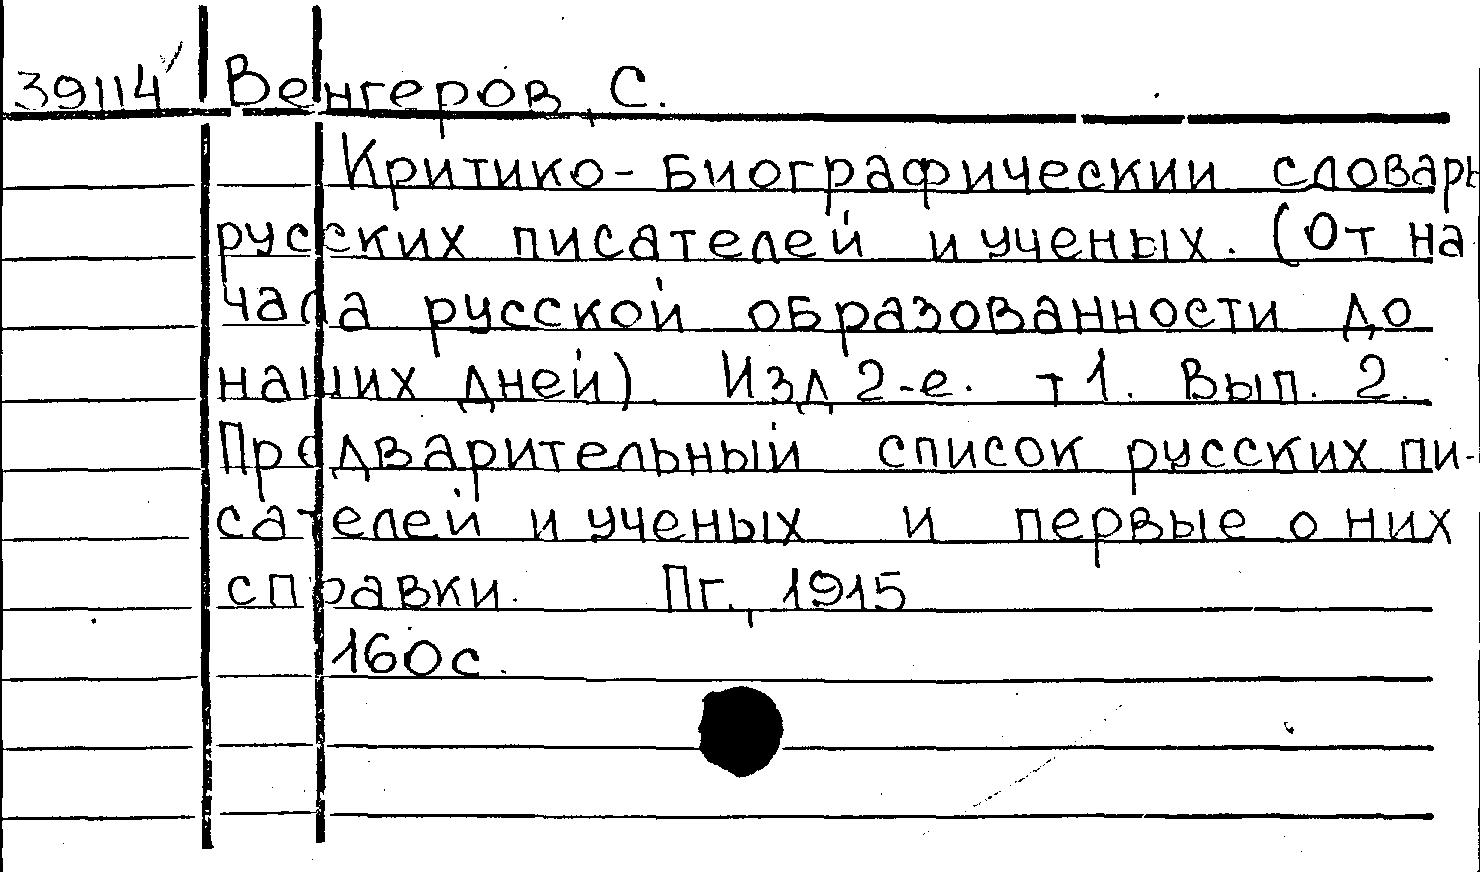 39114 Венгеров, С.
Критико-биографический словарь
русских писателей и ученых. (От на
чала русской образованности до
наших дней) Изд 2-е. т 1. Вып. 2.
Предварительный список русских пи-
сателей и ученых и первые о них
справки. Пг., 1915
160 с.